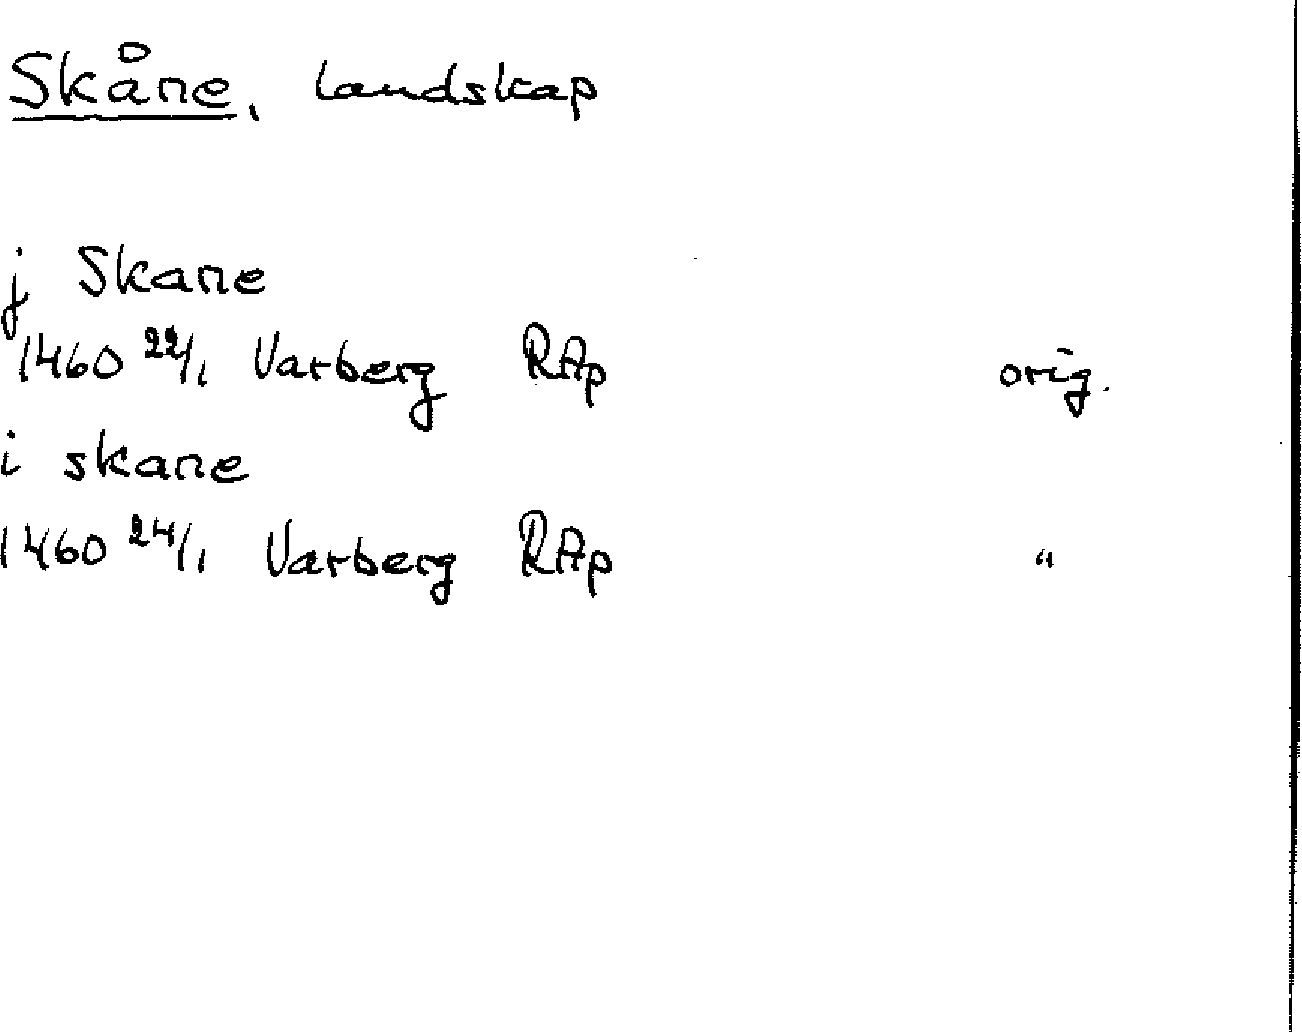 Skåne, landskap
j Skane
1460 22/1 Varberg RAp orig.
i skane
1460 24/1 Varberg RAp "